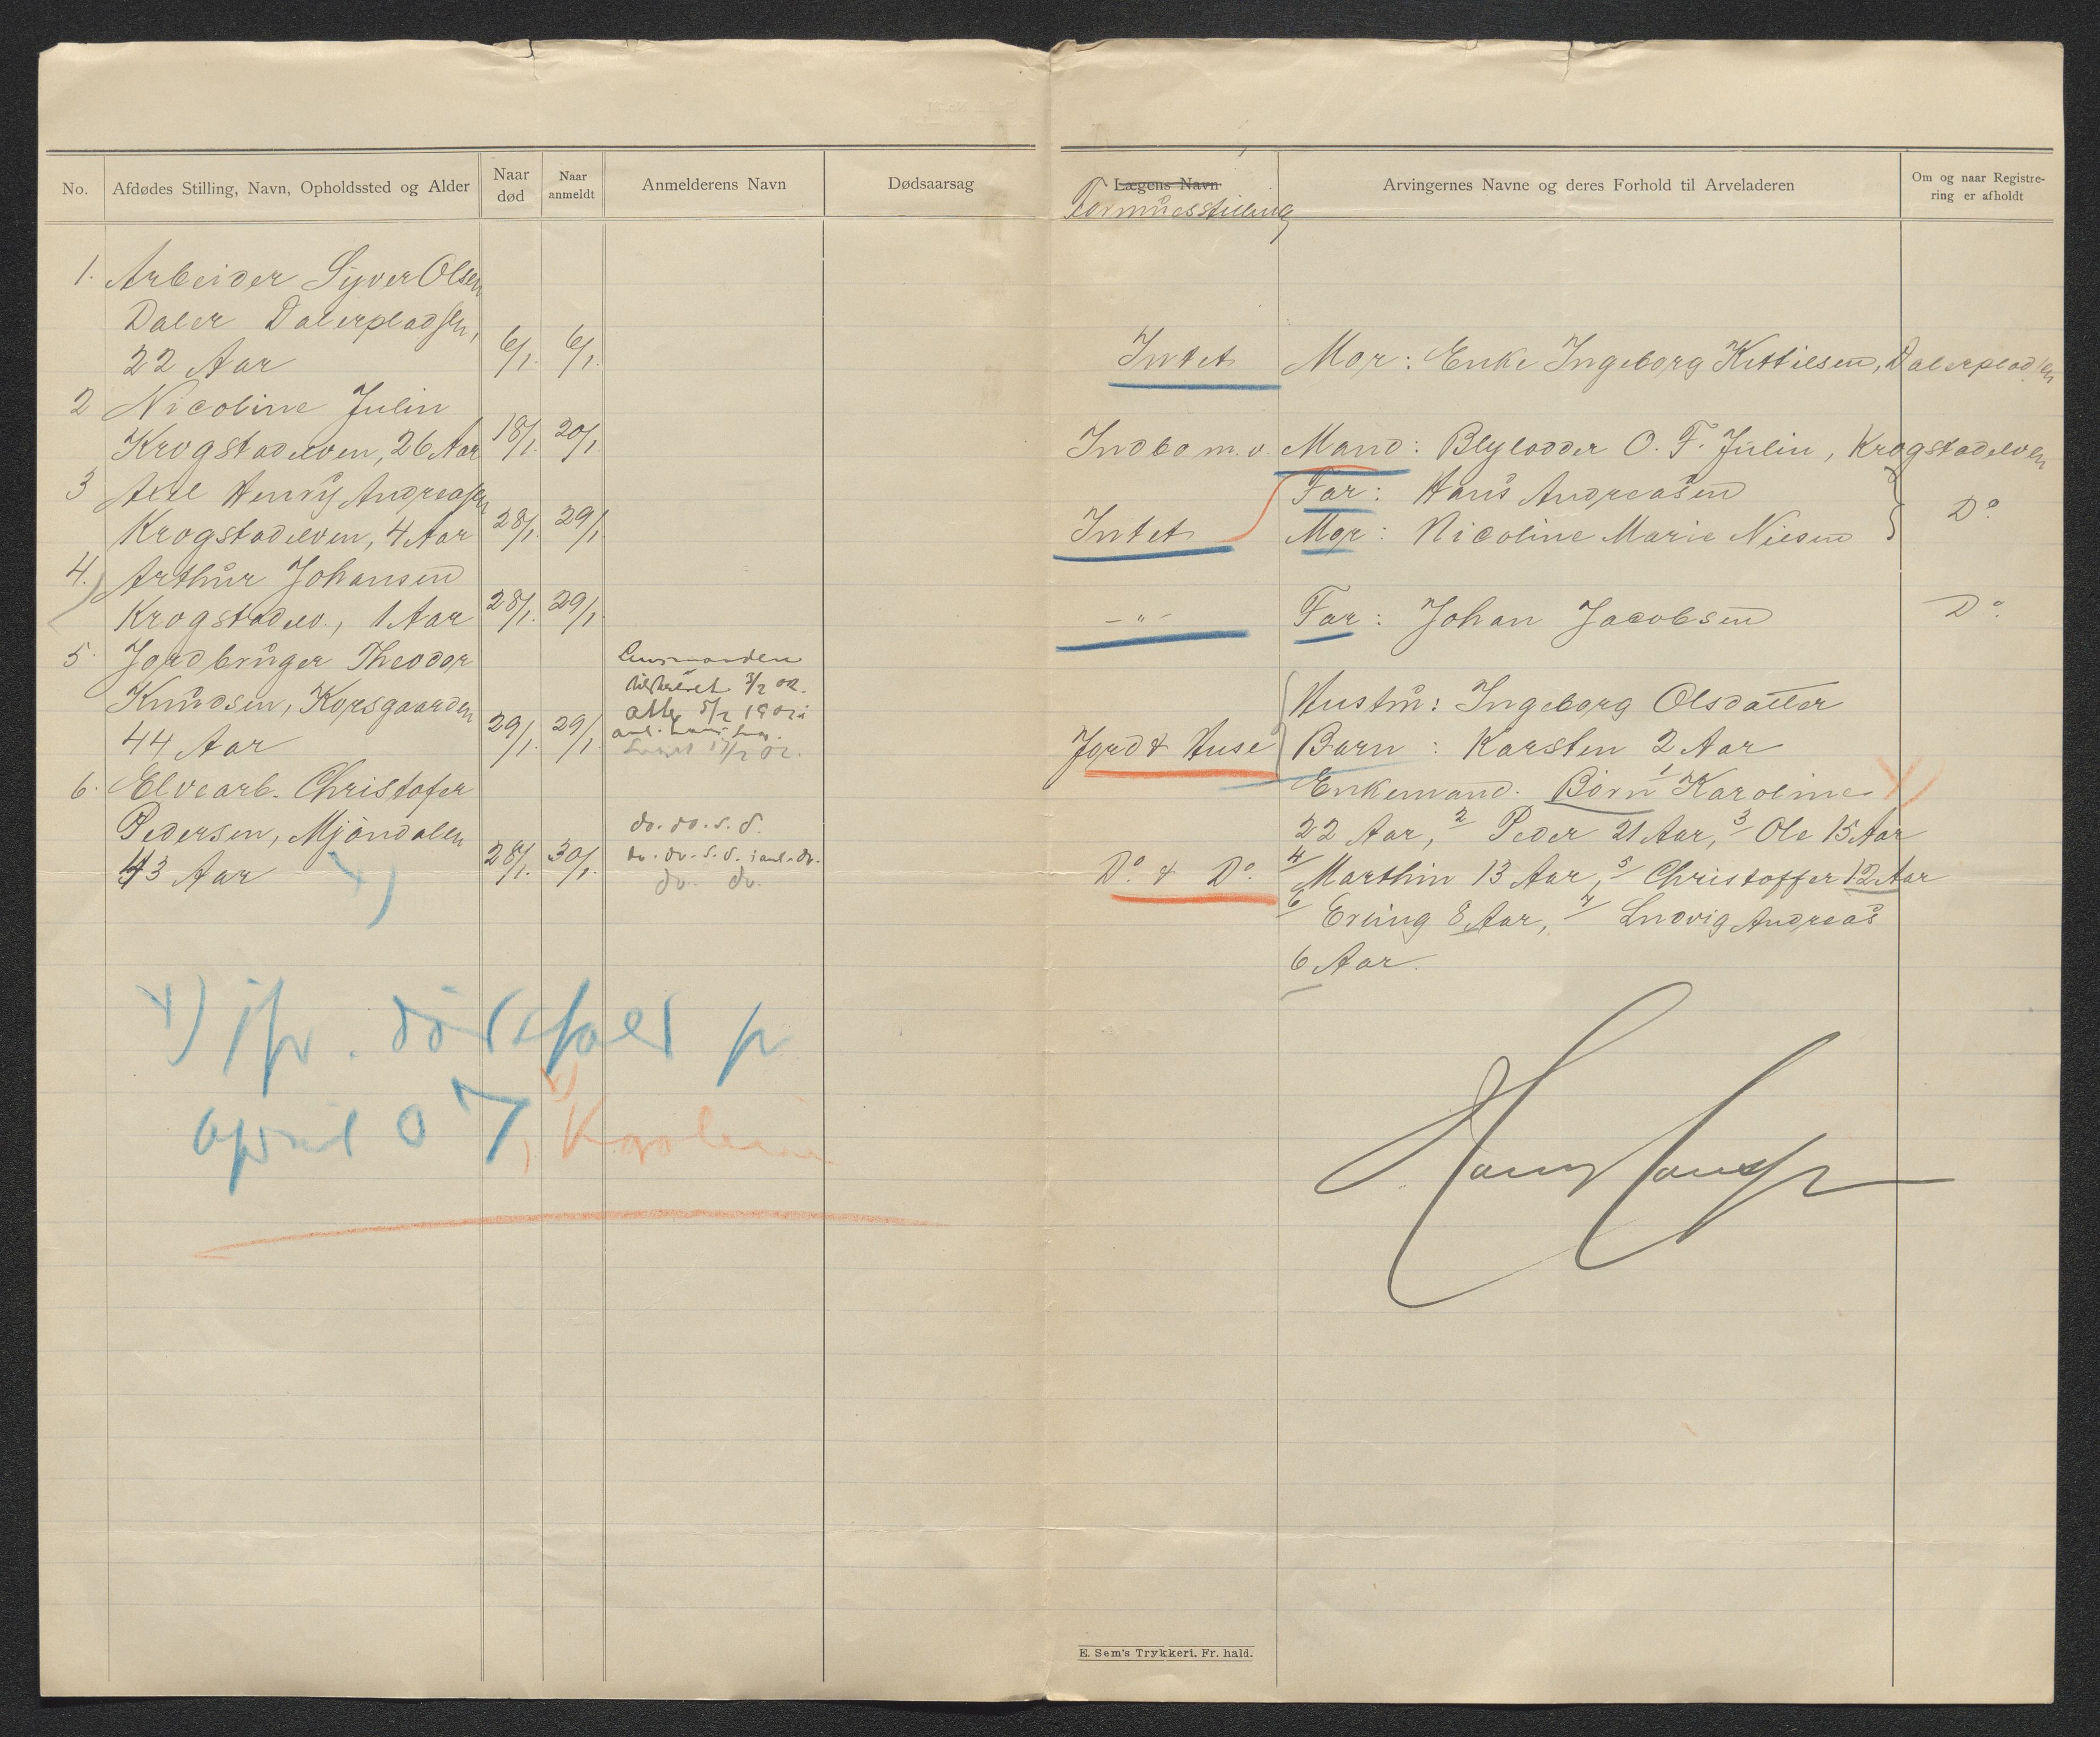 No.
Afdødes Stilling, Navn, Opholdssted og Alder
Naar død
Naar anmeldt
Anmelderens Navn
Dødsaarsag
Lægens Navn
Formuesstilling
Arvingernes Navne og deres Forhold til Arveladeren
Om og naar Registre-
ring er afholdt
1. Arbeider Syver Olsen
Daler Dalerpladsen,
22 Aar 6/1. 6/1. Intet Mor: Enke Ingeborg Kettilsen, Dalerpladsen
2 Nicoline Julin
Krogstadelven, 26 Aar 18/1. 20/1 Indbo m.v. Mand: Blylodder O. F. Julin, Krogstadelven
3 Axel Henry Andreasen Far: Hans Andreasen
Krogstadelven, 4 Aar 28/1. 29/1 Intet Mor: Nicoline Marie Nilsen Do.
4. Arthur Johansen
Krogstadelv., 1 Aar 28/1. 29/1 -"- Far: Johan Jacobsen Do.
5. Jordbruger Theodor Lensmanden
tilskrevet 3/2 02.
Knudsen, Korsgaarden 5/2 Hustru: Ingeborg Olsdatter
44 Aar 29/1. 29/1. 17/2 02. Jord & Huse Barn: Karsten 2 Aar
6. Elvearb. Christofer Enkemand. Børn 1/ Karoline x)
Pedersen, Mjøndalen do. do. s. d. 22 Aar, 2/ Peder 21 Aar, 3/ Ole 15 Aar
43 Aar x) 28/1. 30/1. do. do. s. d. Do. & Do. 4/ Marthin 13 Aar, 5/ Christoffer 12 Aar
do. do.
6/ Erling 8 Aar, Ludvig Andreas
6 Aar.
x) jfr. dødsfald p
april 07, x) Karoline
E. Sem's Trykkeri, Fr. hald.